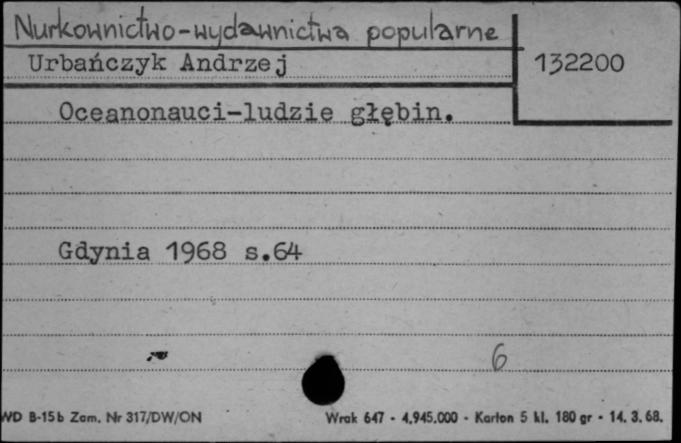 Nurkownictwo-wydawnictwa popularne
Urbańczyk Andrzej
132200
Oceanonauci-ludzie głębin.
Gdynia 1968 s.64
6
WD B-15b Zam. Nr 317/DW/ON
Wrak 647 - 4.945.000 - Karton 5 kl. 180 gr - 14. 3. 68.